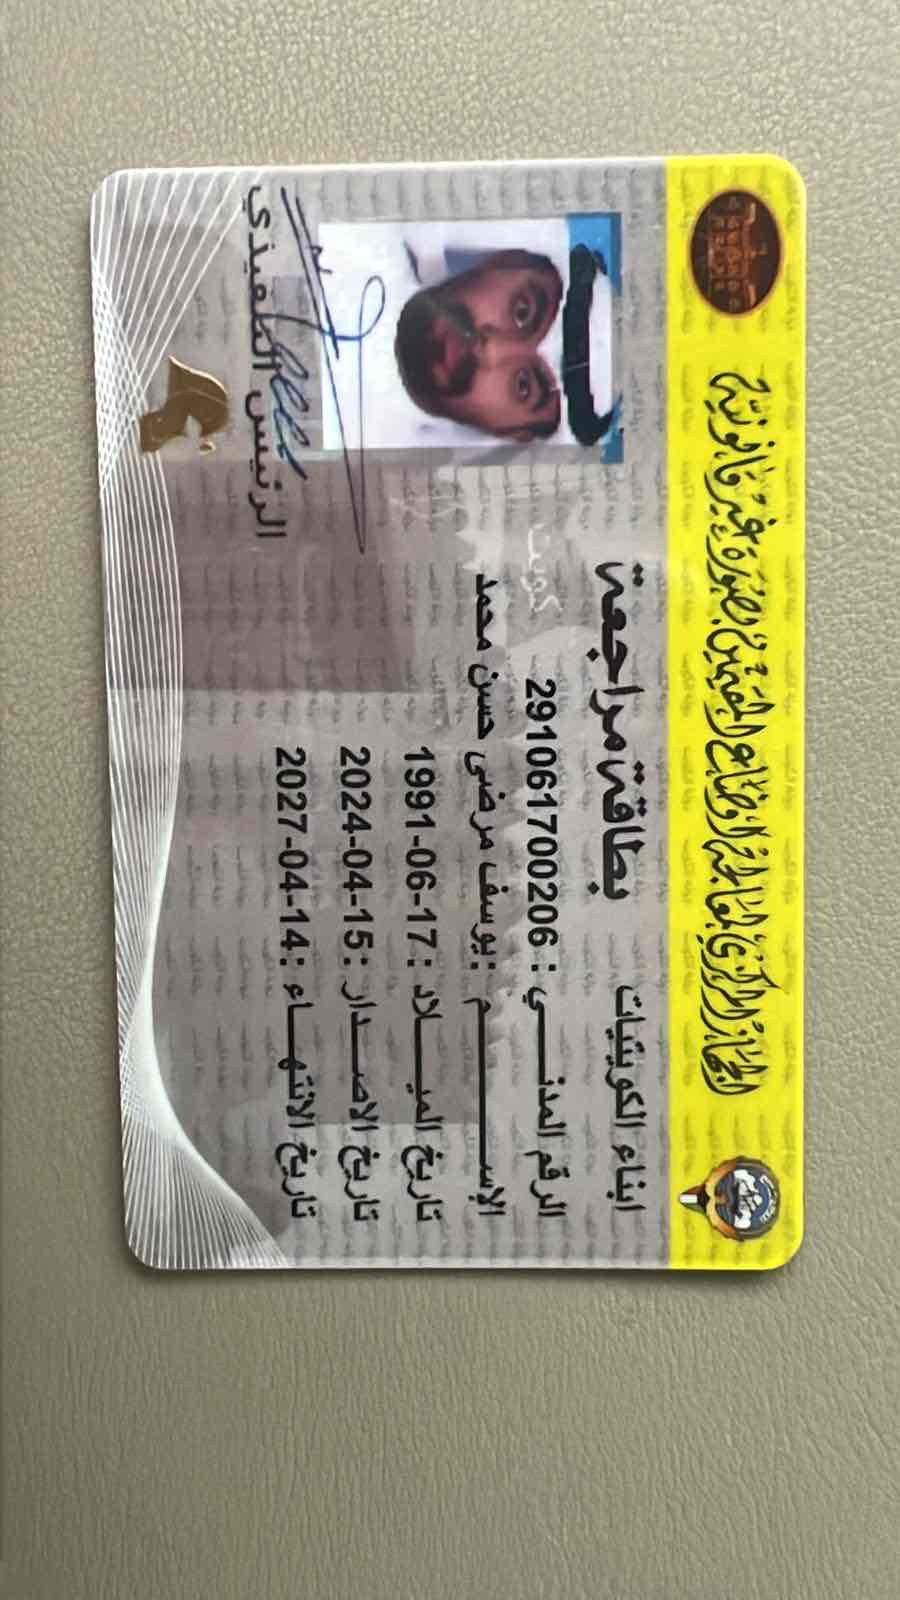 الجهاز المركزي لمعالجة أوضاع المقيمين بصورة غير قانونية
ابناء الكويتيات
بطاقة مراجعة
الرقم المدنـــي : 291061700206
الإســــــــم : يوسف مرضي حسن محمد
تاريخ الميـــلاد : 1991-06-17
تاريخ الاصـــدار : 2024-04-15
تاريخ الانتهـــاء : 2027-04-14
الرئيس التنفيذي